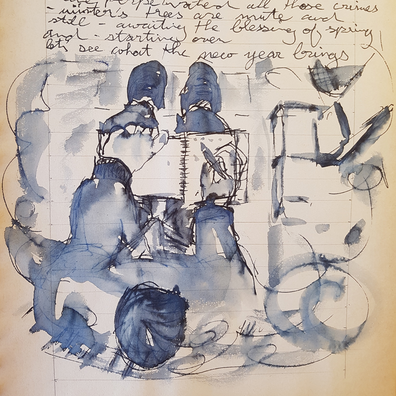 all those crimes
- winter's trees are mute and
still - awaiting the blessing of spring
and - starting over
lets see what the new year brings